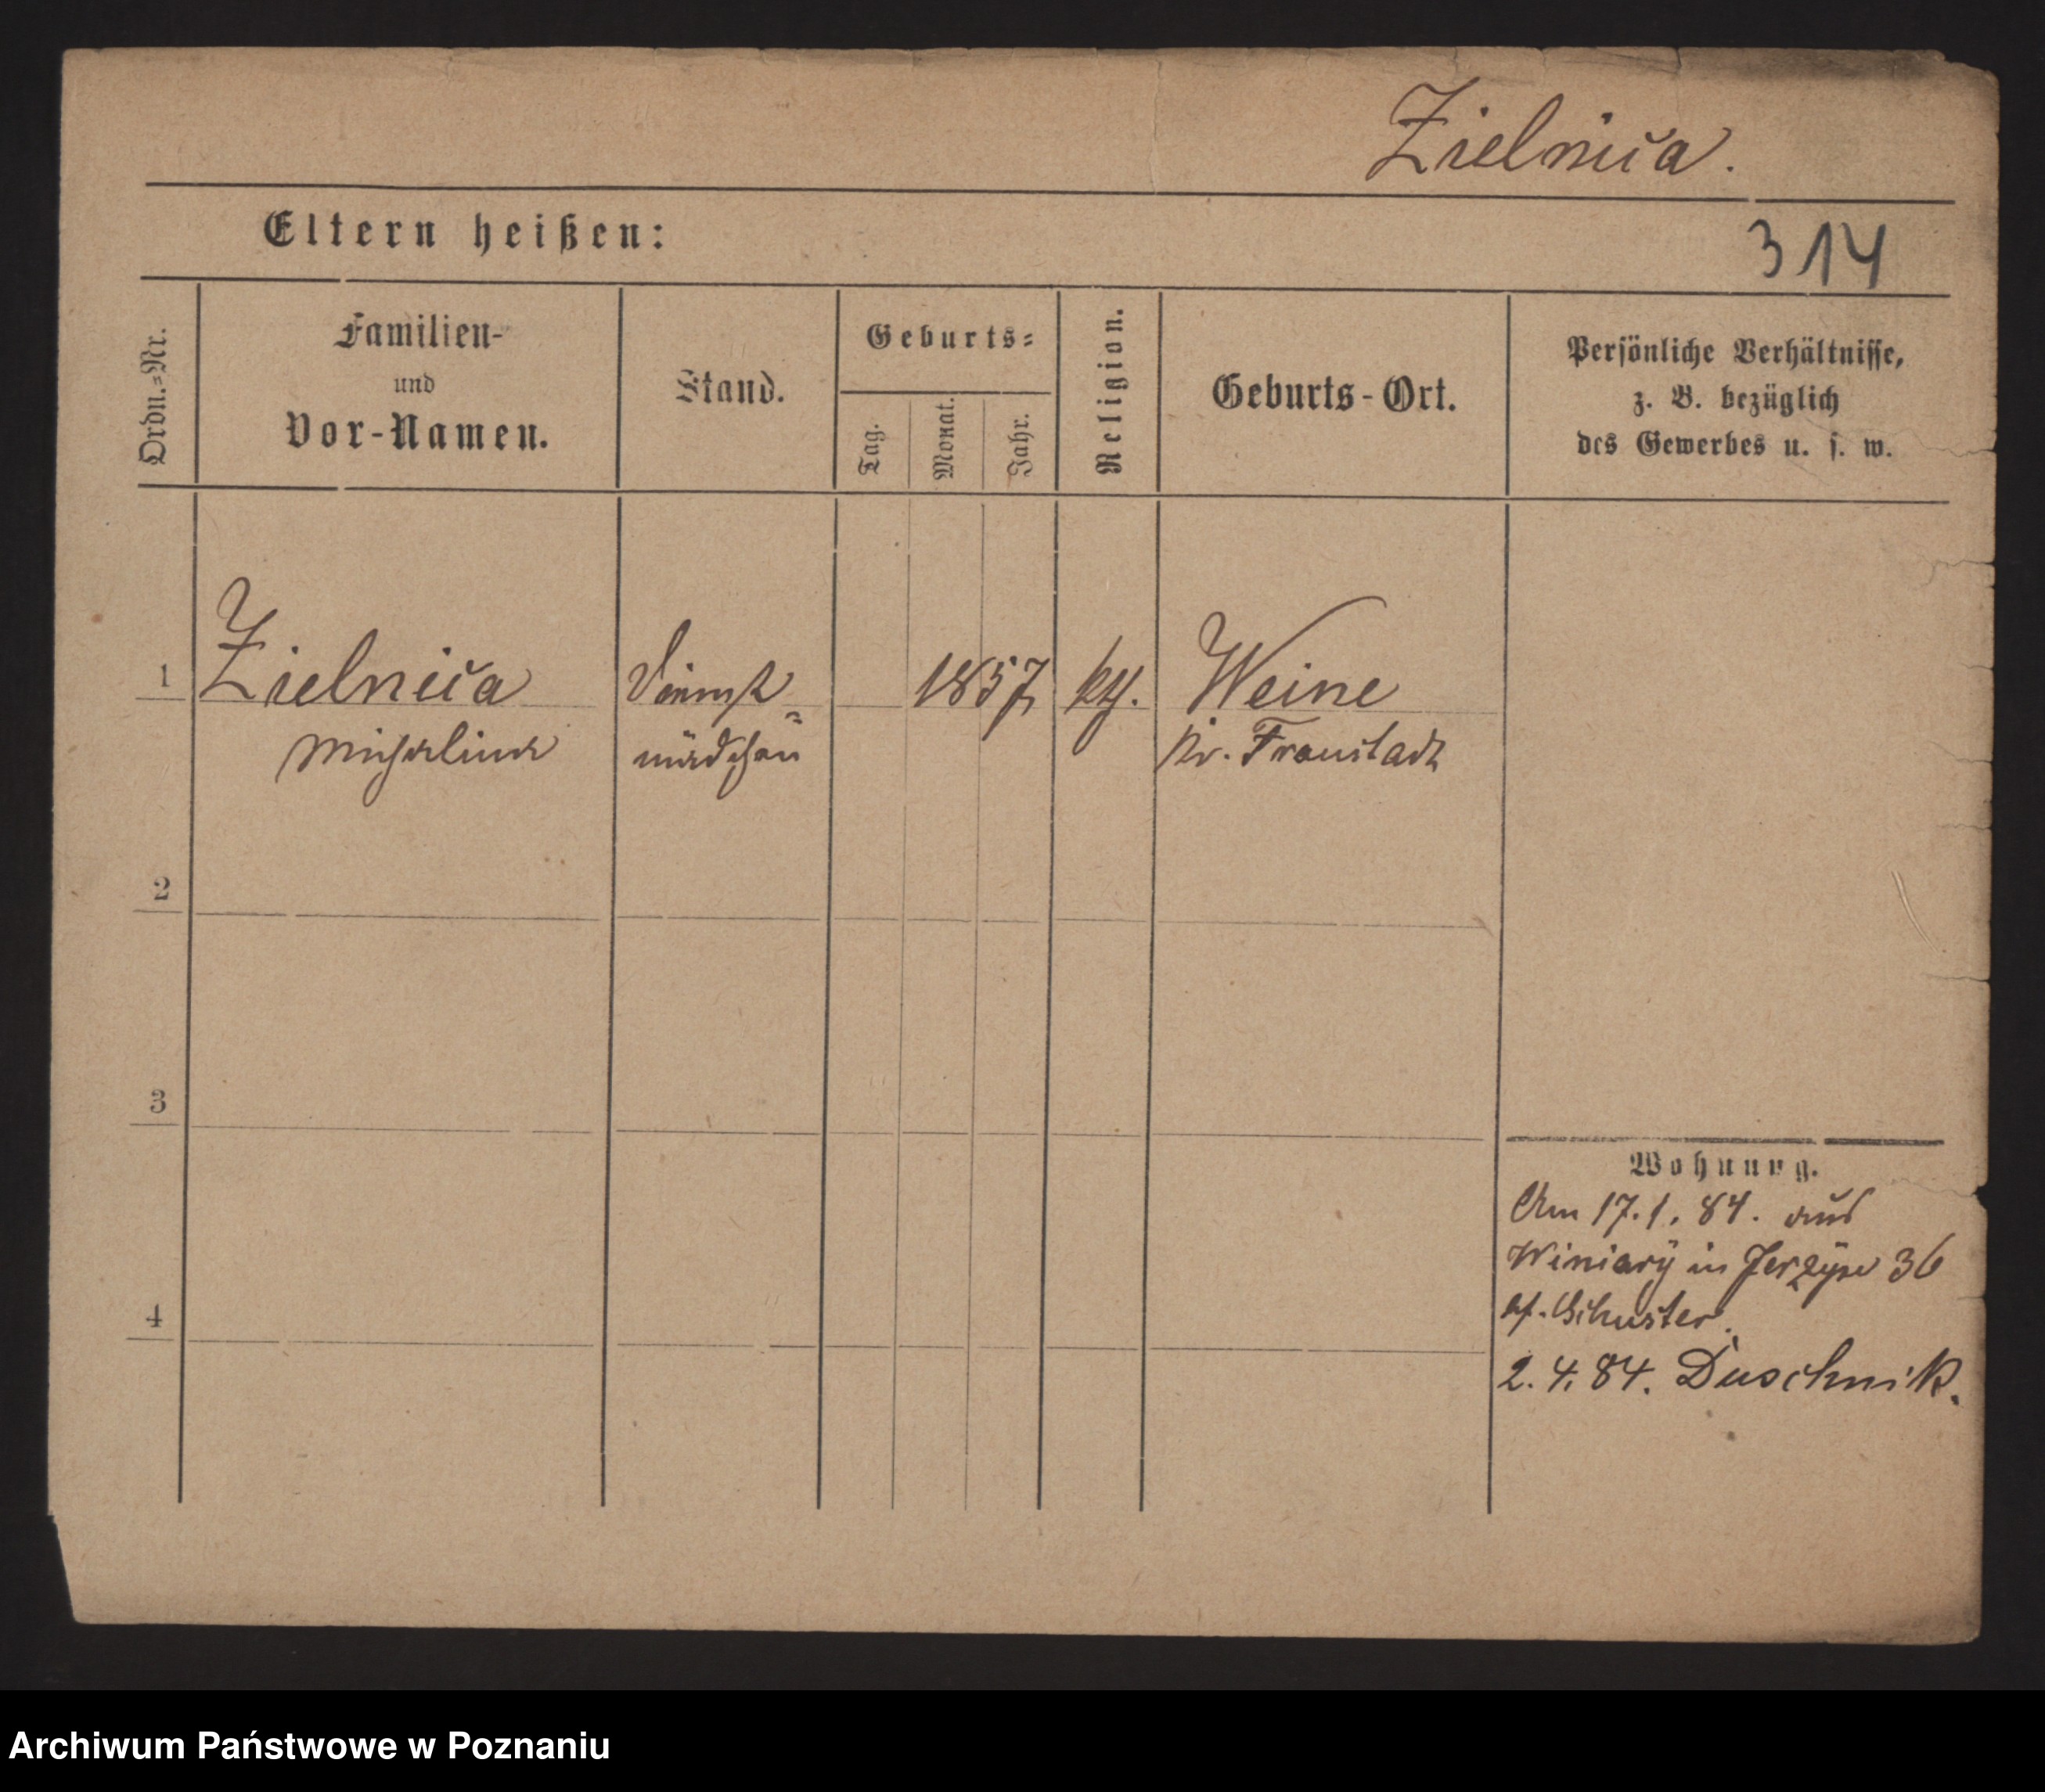 Zielnica.
Eltern heißen:
314
Ordn.=Nr.
Familien-
und
Vor-Namen.
Stand.
Geburts=
Tag.
Monat.
Jahr.
Religion.
Geburts-Ort.
Persönliche Verhältnisse,
z. B. bezüglich
des Gewerbes u. s. w.
1 Zielnica Dienst= 1857 kth. Weine
Michalina mädchen Kr. Fraustadt
2
3
Wohnung.
Am 17.1.84. aus
Winiary in Jerzyce 36
Schuster.
4
2.4.84. Duschnik.
Archiwum Państwowe w Poznaniu